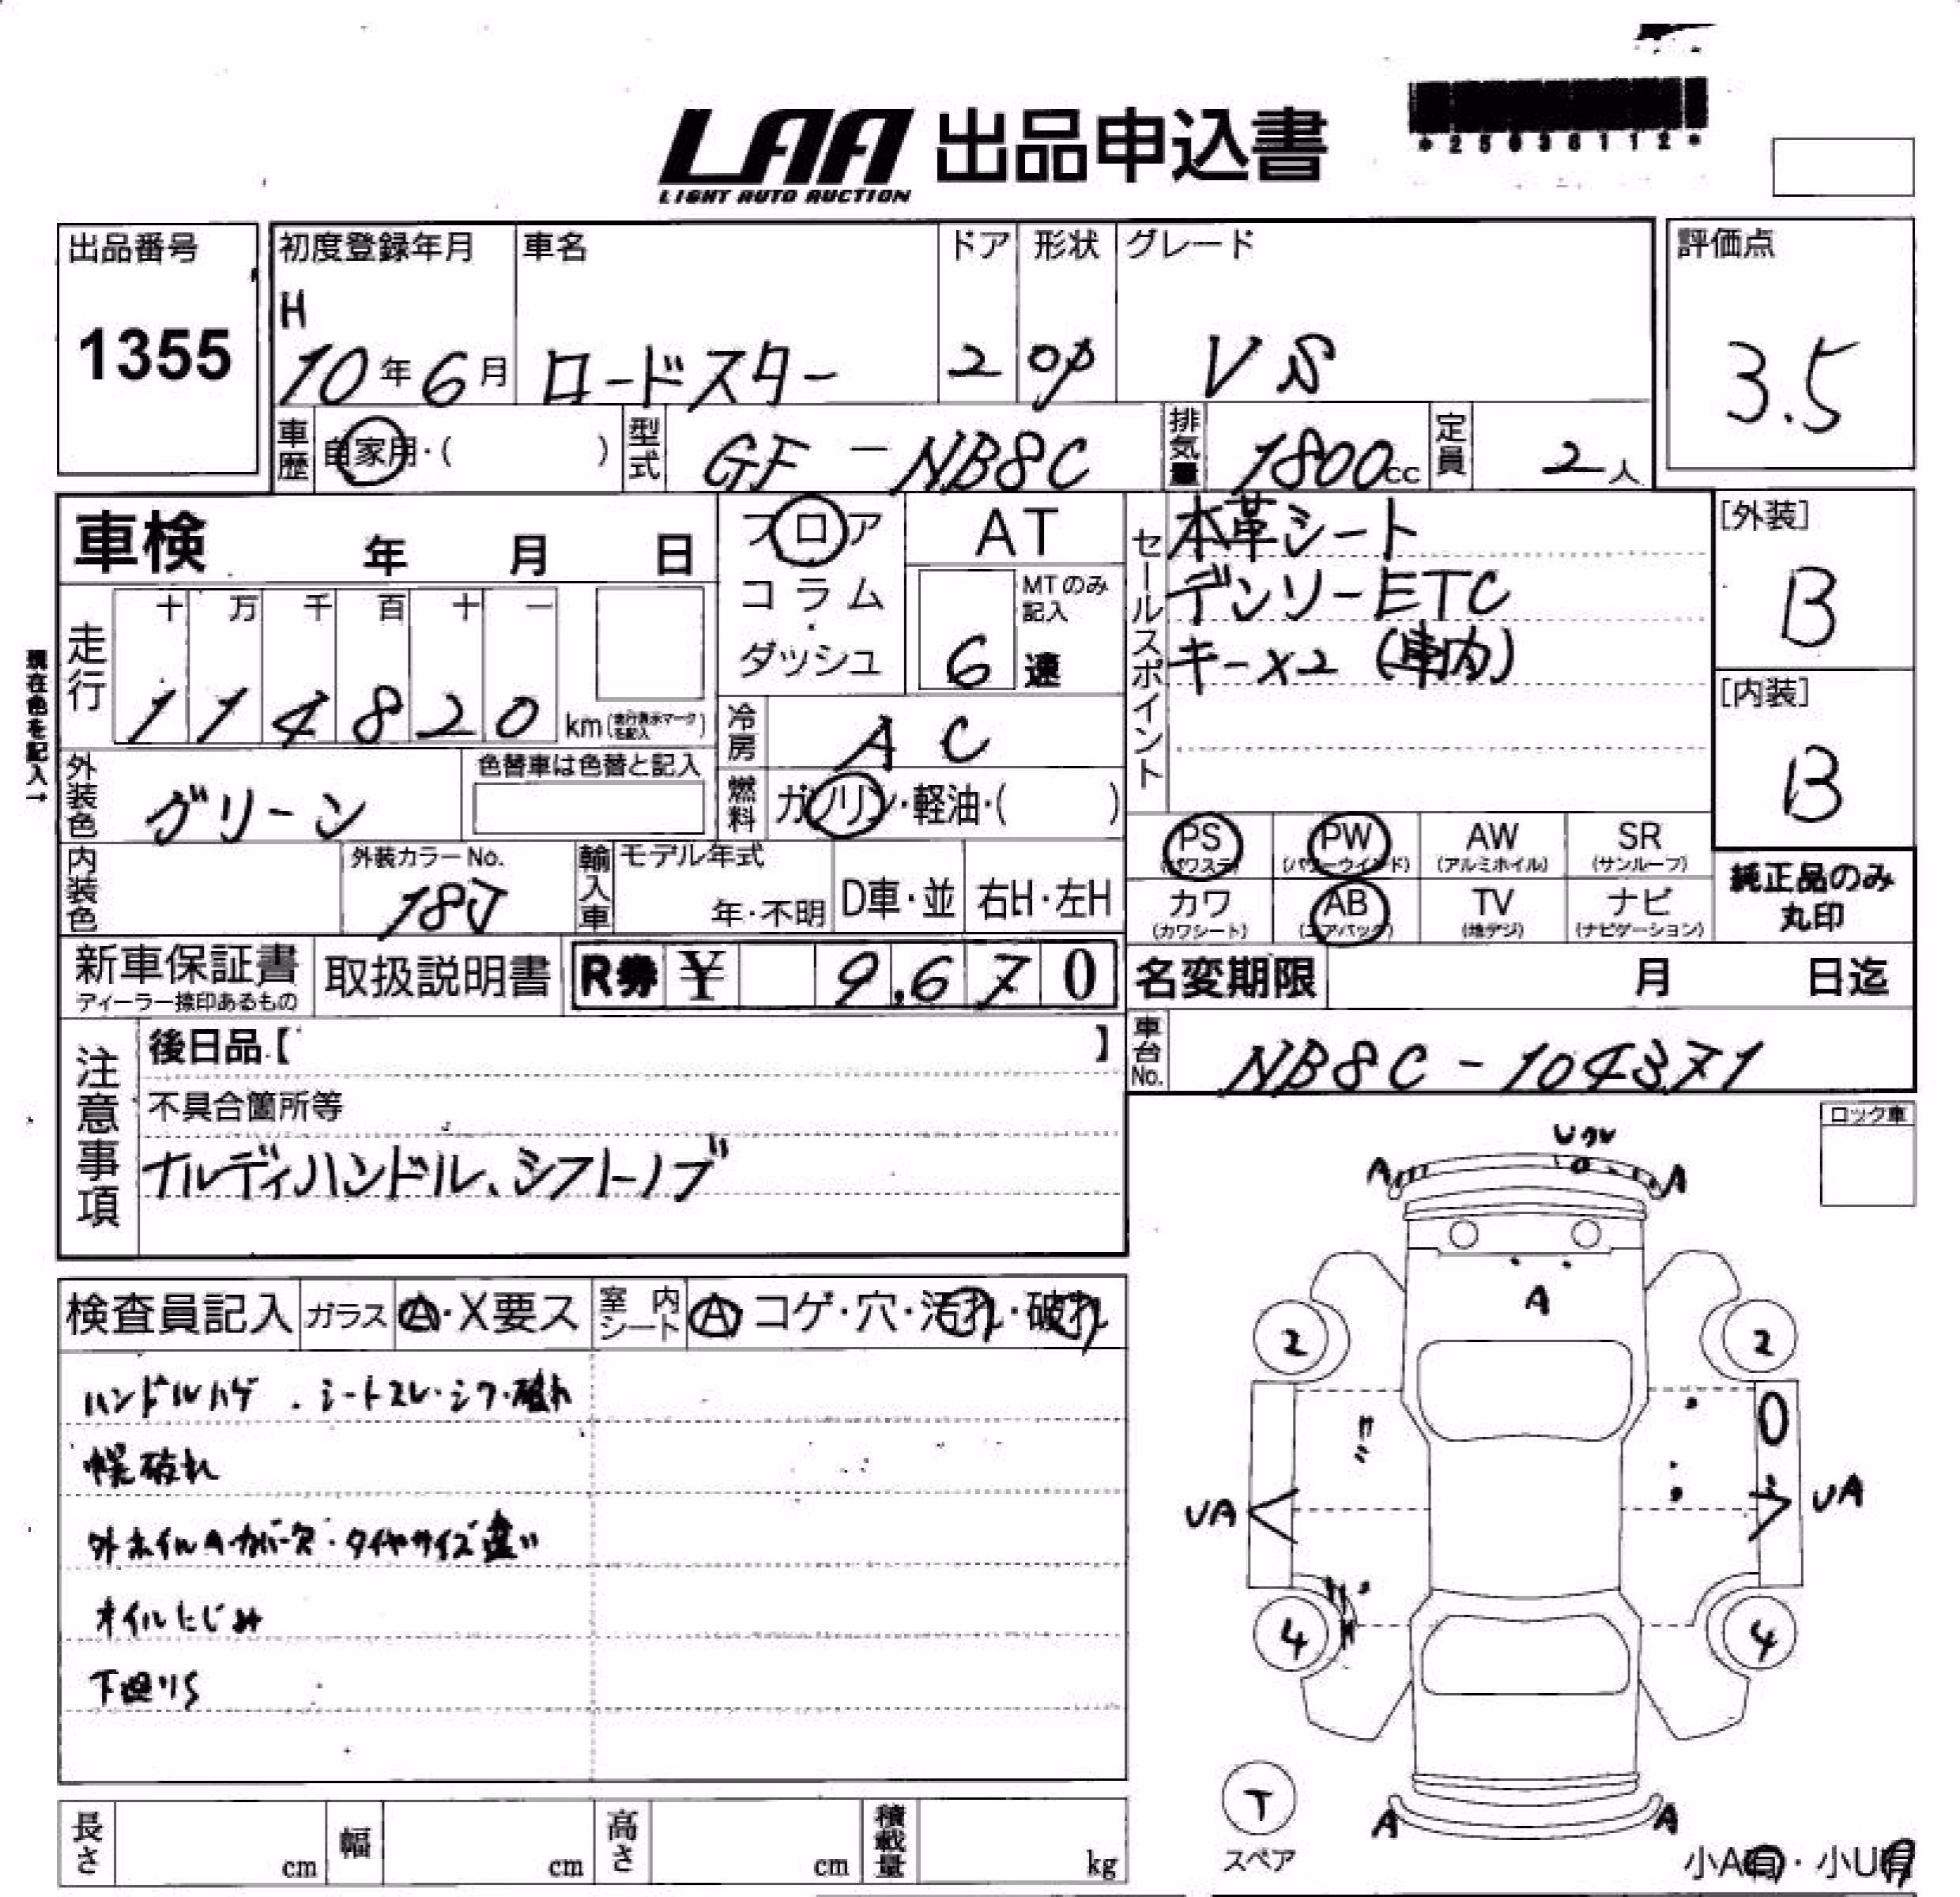 *25036112*
LAA 出品申込書
LIGHT AUTO AUCTION
出品番号
1355
初度登録年月
H
10年6月
車名
ロードスター
ドア
2
形状
OP
グレード
VS
評価点
3.5
車歴
自家用・( )
型式
GF-NB8C
排気量
1800cc
定員
2人
車検 年 月 日
フロア
コラム
ダッシュ
AT
MTのみ記入
6速
セールスポイント
本革シート
デンソーETC
キー×2 (車内)
[外装]
B
[内装]
B
現在色を記入→
走行
十 万 千 百 十 一
1 1 4 8 2 0 km
冷房
AC
外装色
グリーン
色替車は色替と記入
燃料
ガソリン・軽油・( )
PS (パワステ)
PW (パワーウインド)
AW (アルミホイル)
SR (サンルーフ)
カワ (カワシート)
AB (エアバック)
TV (地デジ)
ナビ (ナビゲーション)
純正品のみ
丸印
内装色
外装カラーNo.
18J
輸入車
モデル年式
年・不明
D車・並
右H・左H
新車保証書
ディーラー捺印あるもの
取扱説明書
R券 ¥ 9,670
名変期限 月 日迄
車台No.
NB8C-104371
注意事項
後日品【 】
不具合箇所等
ナルディハンドル、シフトノブ
ロック車
検査員記入
ガラス
A・X要ス
室内シート
A コゲ・穴・汚れ・破れ
ハンドルハゲ . シートスレ・シワ・破れ
幌破れ
外ホイルA カバー欠・タイヤサイズ違い
オイルにじみ
下廻りS
A
A
A
2
2
UA
UA
4
4
T
スペア
A
A
小A有・小U有
長さ cm
幅 cm
高さ cm
積載量 kg